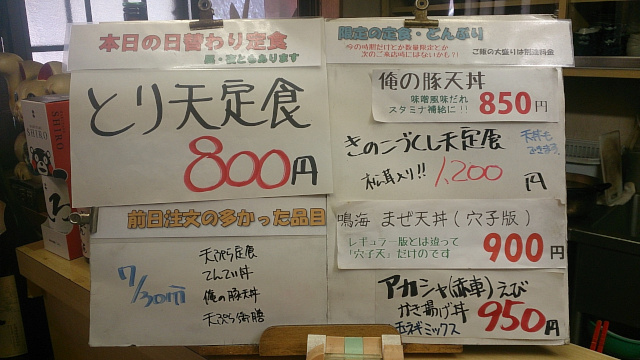 本日の日替わり定食
とり天定食
800円
前日注文の多かった品目
7/30分
天ぷら定食
てんてい丼
俺の豚天丼
天ぷら御膳
限定の定食・どんぶり
今の時期だけとか数量限定とか
次のご来店時にはないかも?!
ご飯の大盛りは別途料金
俺の豚天丼
味噌風味だれ
スタミナ補給に!!
850円
きのこづくし天定食
松茸入り!!
1,200円
鳴海 まぜ天丼(穴子版)
レギュラー版とは違って
「穴子天」だけのです
900円
アカシャ(赤車)えび
かき揚げ丼
玉ネギミックス
950円
SHIRO